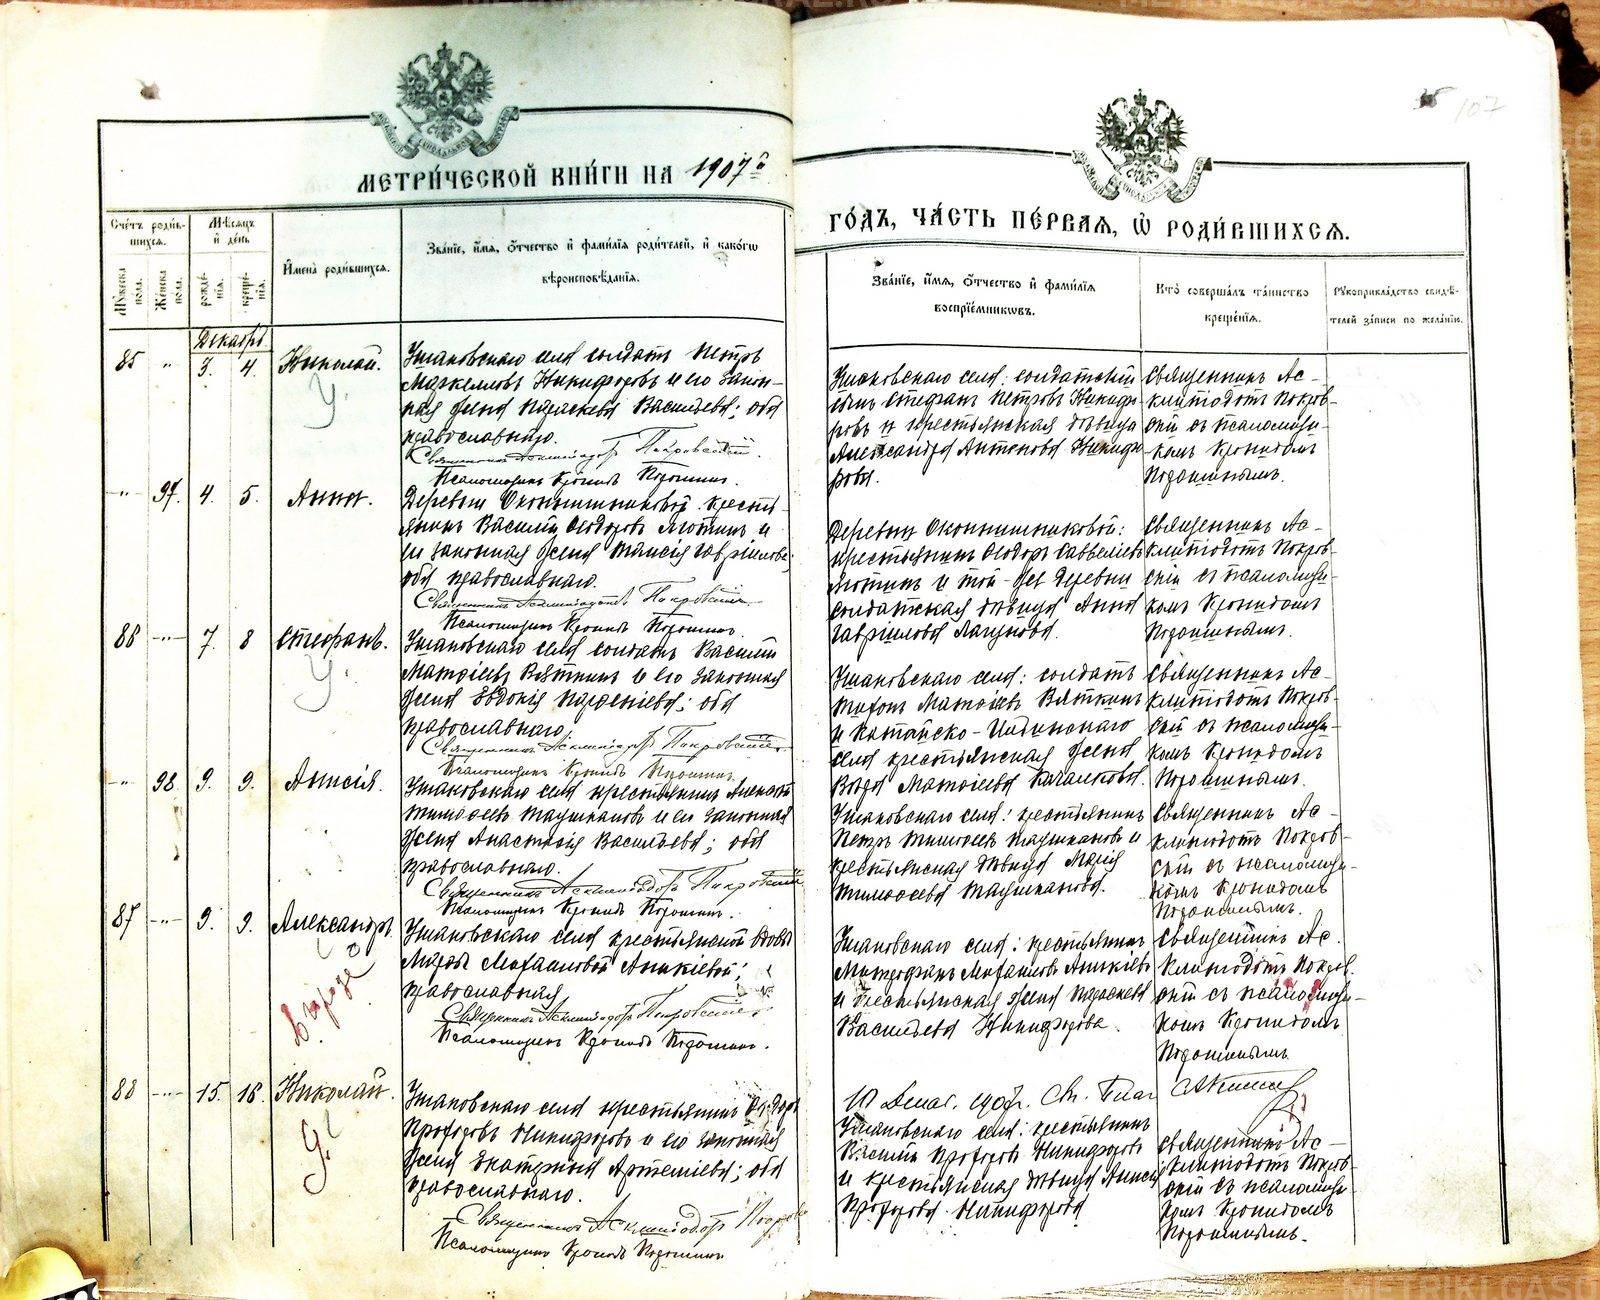 МЕТРИ́ЧЕСКОЙ КНИ́ГИ НА 1907й
ГО́ДЪ, ЧА́СТЬ ПЕ́РВАЯ, Ѡ РОДИ́ВШИХСЯ.
107
Сче́тъ роди́в-
шихся.
Мѣ́сяцъ
и де́нь
Му́жеска
пола.
Же́нска
пола.
рожде́-
нія.
креще́-
нія.
Имена̀ роди́вшихся.
Зва́ніе, и́мя, о́тчество и фами́лія роди́телей, и како́гѡ
вѣроисповѣ́данія.
Зва́ніе, и́мя, о́тчество и фами́лія
воспріе́мниковъ.
Кто̀ соверша́лъ та́инство
креще́нія.
Рукоприкла́дство свидѣ́-
телей за́писи по жела́нію.
Декабрь
85 " 3. 4. Николай.
Ушаковскаго села солдатъ Петръ
Маркелловъ Никифоровъ и его закон-
ная жена Параскева Васильева; оба
православнаго.
Священникъ Асклипіодотъ Покровскій.
Псаломщикъ Кронидъ Порошинъ.
Ушаковскаго села: солдатскій
сынъ Стефанъ Петровъ Никифо-
ровъ и крестьянская дѣвица
Александра Антонова Никифо-
рова.
Священникъ Ас-
клипіодотъ Покров-
скій съ псаломщи-
комъ Кронидомъ
Порошинымъ.
-"- 97. 4. 5. Анна.
Деревни Оконишниковой кресть-
янинъ Василій Ѳеодоровъ и
его законная жена Таисія Гавріилова;
оба православнаго.
Священникъ Асклипіодотъ Покровскій.
Псаломщикъ Кронидъ Порошинъ.
Деревни Оконишниковой:
крестьянинъ Ѳеодоръ Савельевъ
и той-же деревни
солдатская дѣвица Анна
Гавріилова
Священникъ Ас-
клипіодотъ Покров-
скій съ псаломщи-
комъ Кронидомъ
Порошинымъ.
86 -"- 7. 8 Стефанъ.
Ушаковскаго села солдатъ Василій
Матѳіевъ Вяткинъ и его законная
жена Евдокія Парѳеніева; оба
православнаго.
Священникъ Асклипіодотъ Покровскій.
Псаломщикъ Кронидъ Порошинъ.
Ушаковскаго села: солдатъ
Матѳіевъ Вяткинъ
и Катайско-
села крестьянская жена
Матѳіева
Священникъ Ас-
клипіодотъ Покров-
скій съ псаломщи-
комъ Кронидомъ
Порошинымъ.
-"- 98. 9. 9. Анисія.
Ушаковскаго села крестьянинъ Алексѣй
Тимоѳеевъ Таушкановъ и его законная
жена Анастасія Васильева; оба
православнаго.
Священникъ Асклипіодотъ Покровскій
Псаломщикъ Кронидъ Порошинъ.
Ушаковскаго села: крестьянинъ
Петръ Тимоѳеевъ Таушкановъ и
крестьянская дѣвица Марія
Тимоѳеева Таушканова.
Священникъ Ас-
клипіодотъ Покров-
скій съ псаломщи-
комъ Кронидомъ
Порошинымъ.
87 -"- 9. 9. Александръ.
Ушаковскаго села крестьянской вдовы
Михаиловой Аникіевой;
православная
Священникъ Асклипіодотъ Покровскій
Псаломщикъ Кронидъ Порошинъ.
Ушаковскаго села: крестьянинъ
Митрофанъ Михаиловъ Аникіевъ
и крестьянская жена Параскева
Васильева Никифорова.
Священникъ Ас-
клипіодотъ Покров-
скій съ псаломщи-
комъ Кронидомъ
Порошинымъ
10 Декаб. 1907 г. Св. Благ.
88 -"- 15. 16. Николай.
Ушаковскаго села крестьянинъ
Прохоровъ Никифоровъ и его законная
жена Екатерина Артеміева; оба
православнаго.
Священникъ Асклипіодотъ Покровскій
Псаломщикъ Кронидъ Порошинъ
Ушаковскаго села: крестьянинъ
Василій Прохоровъ Никифоровъ
и крестьянская дѣвица Анисія
Прохорова Никифорова
Священникъ Ас-
клипіодотъ Покров-
скій съ псаломщи-
комъ Кронидомъ
Порошинымъ.